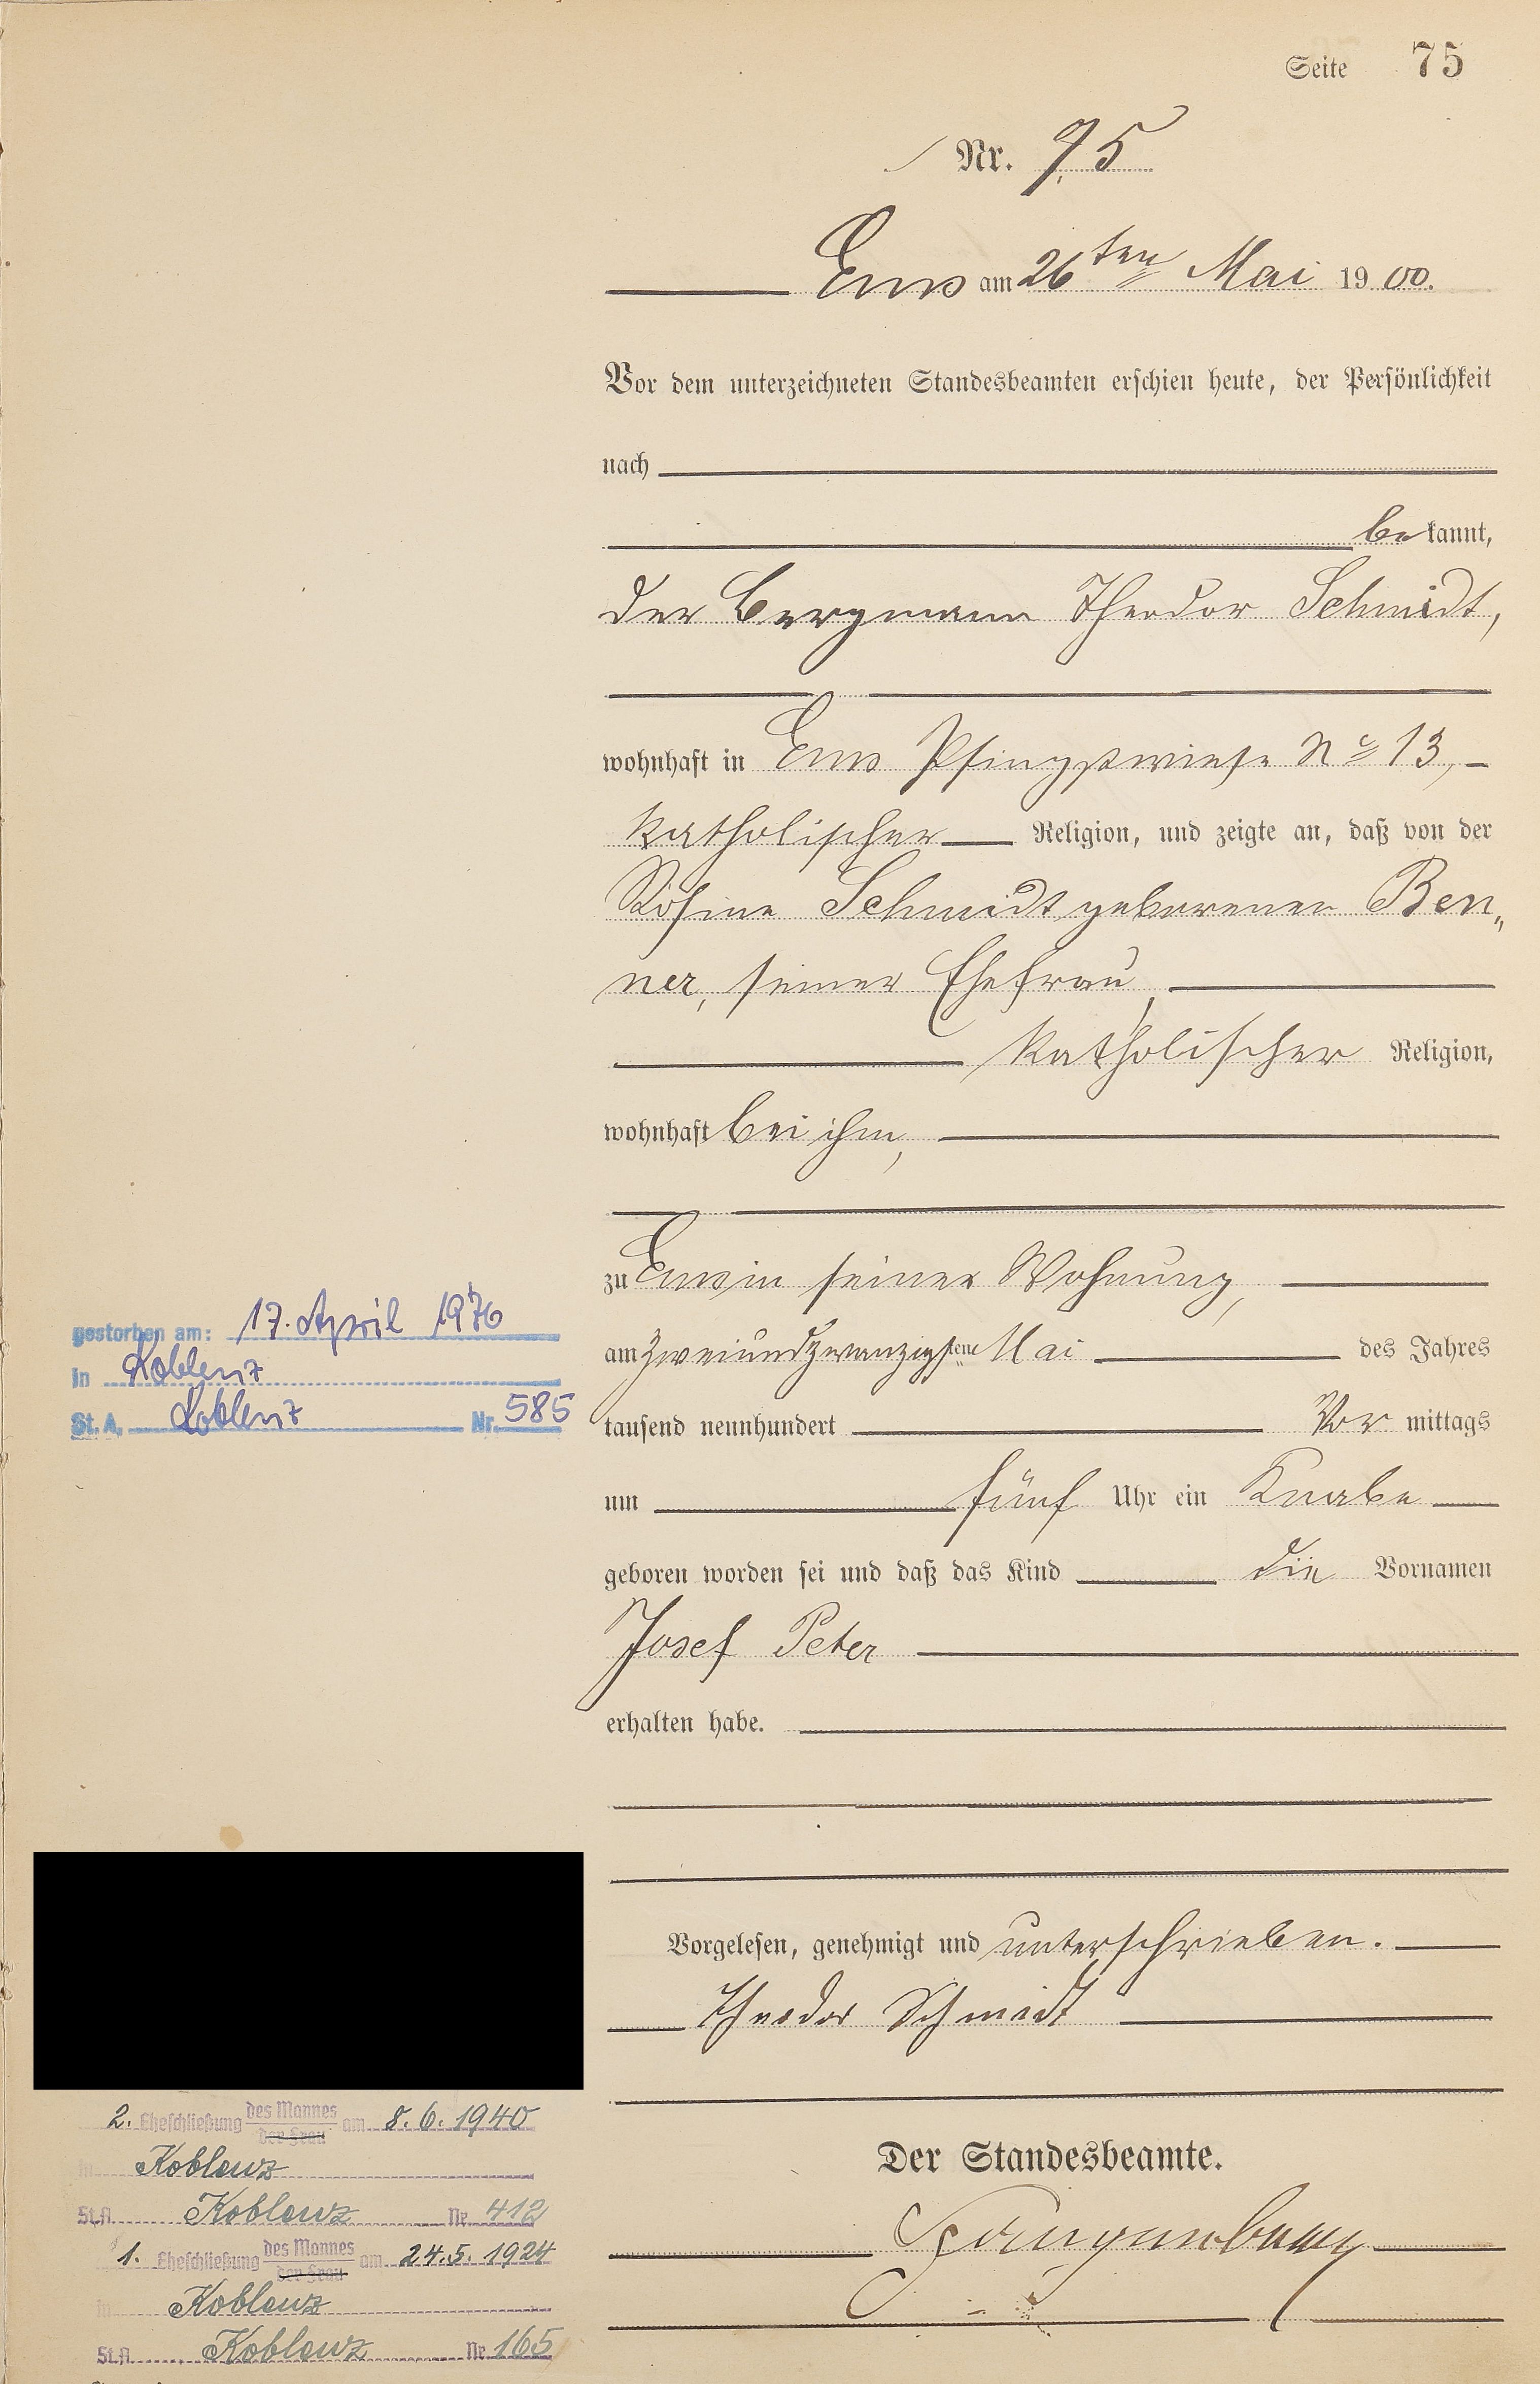 Seite 75
Nr. 75
Ems am 26ten Mai 1900.
Vor dem unterzeichneten Standesbeamten erschien heute, der Persönlichkeit
nach
bekannt,
der Bergmann Theodor Schmidt,
wohnhaft in Ems Pfingstwiese No 13,
katholischer Religion, und zeigte an, daß von der
Rosina Schmidt geborenen Ben„
ner, seiner Ehefrau,
katholischer Religion,
wohnhaft bei ihm,
zu Ems in seiner Wohnung,
am zweiundzwanzigsten Mai des Jahres
tausend neunhundert Vor mittags
um fünf Uhr ein Knabe
geboren worden sei und daß das Kind die Vornamen
Josef Peter
erhalten habe.
Vorgelesen, genehmigt und unterschrieben.
Theodor Schmidt
Der Standesbeamte.
gestorben am: 17. April 1976
in Koblenz
St. A. Koblenz Nr. 585
2. Eheschließung des Mannes am 8.6.1940
der Frau
in Koblenz
St.A. Koblenz Nr. 412
1. Eheschließung des Mannes am 24.5.1924
der Frau
in Koblenz
St.A. Koblenz Nr. 165